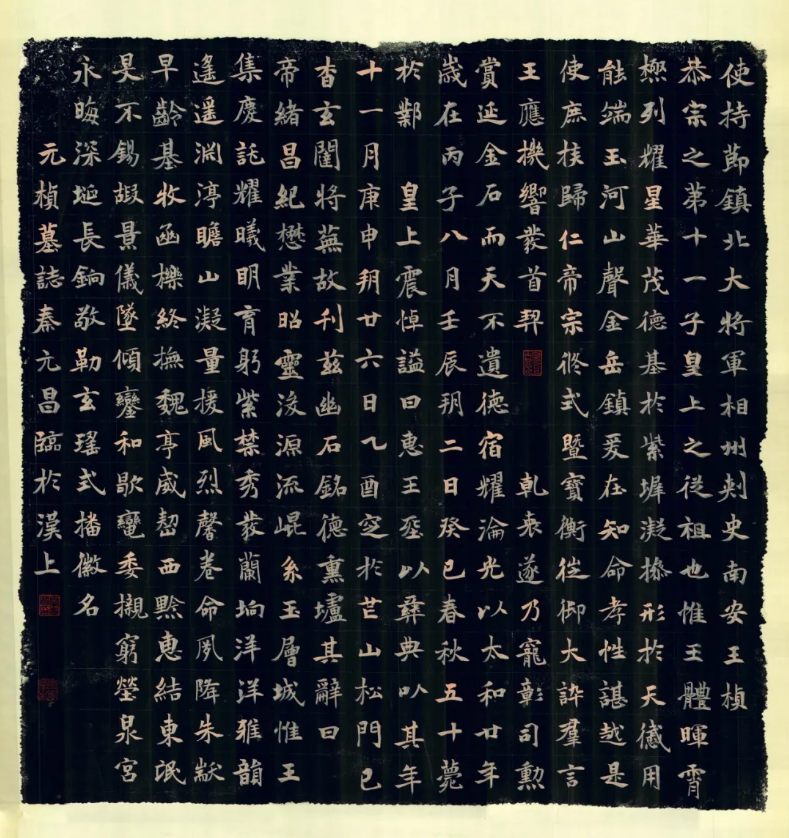 使持節鎮北大將軍相州刾史南安王楨
恭宗之第十一子皇上之從祖也惟王體暉霄
極列耀星華茂德基於紫墀凝操形於天感用
能端玉河山聲金岳鎮爰在知命孝性諶越是
使庶族歸仁帝宗攸式暨寶衡徙御大訊羣言
王應機響發首契 乹衷遂乃寵彰司勳
賞延金石而天不遺德宿耀淪光以太和廿年
歲在丙子八月壬辰朔二日癸巳春秋五十薨
於鄴 皇上震悼謚曰惠王葬以彝典以其年
十一月庚申朔廿六日乙酉窆於芒山松門已
杳玄闥將蕪故刊茲幽石銘德熏壚其辭曰
帝緒昌紀懋業昭靈浚源流崐系玉層城惟王
集慶託耀曦明育躬紫禁秀發蘭坰洋洋雅韻
遙遥淵渟瞻山凝量援風烈馨卷命夙降朱黻
早齡基牧函櫟終撫魏亭威整西黔惠結東氓
旻不錫嘏景儀墜傾鑾和歇轙委櫬窮塋泉宮
永晦深埏長扃敬勒玄瑤式播徽名
元楨墓誌秦元昌臨於漢上